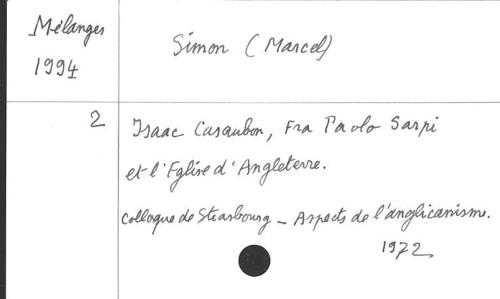 Mélanges
1994
Simon (Marcel)
2
Isaac Casaubon, Fra Paolo Sarpi
et l'Eglise d'Angleterre.
Colloque de Strasbourg - Aspects de l'anglicanisme.
1972